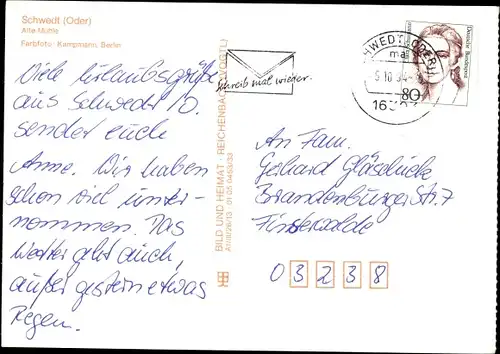 Schwedt (Oder)
Alte Mühle
Farbfoto: Kampmann, Berlin
Viele Urlaubsgrüße
aus Schwedt/O.
sendet euch
Anne. Wir haben
schon viel unter-
nommen. Das
Wetter geht auch,
außer gestern etwas
Regen.
BILD UND HEIMAT · REICHENBACH (VOGTL)
schreib mal wieder.
HWEDT (ODER)
80
Deutsche Bundespost
An Fam.
Gerhard Gläsbück
Brandenburger Str. 7
Finsterwalde
03238